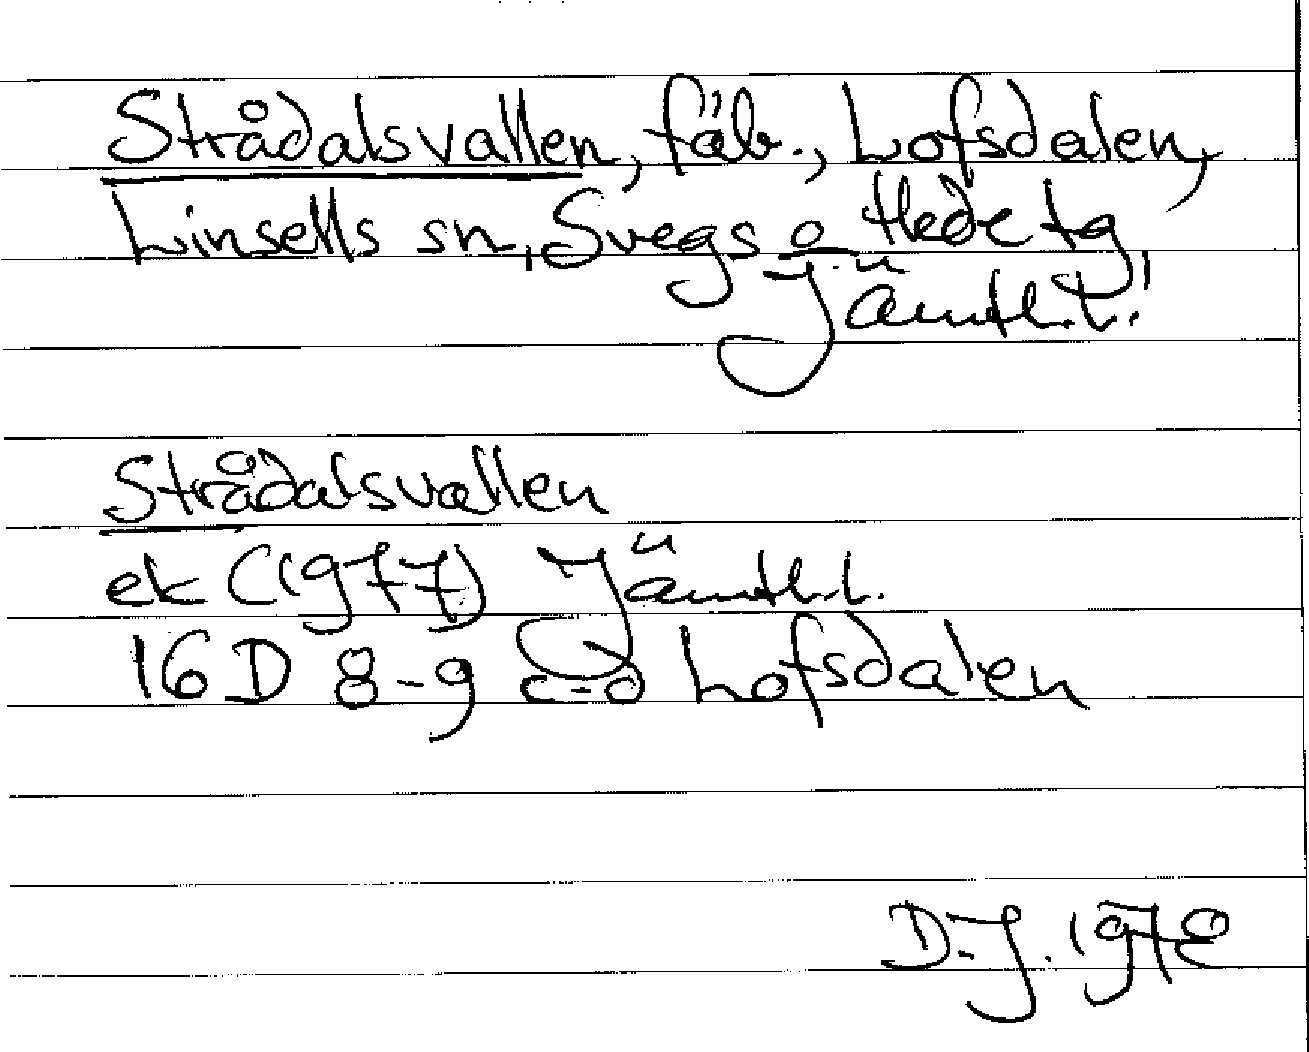 Strådalsvallen, fäb., Lofsdalen,
Linsells sn, Svegs o Hede tg,
Jämtl.l.
Strådalsvallen
ek (1977) Jämtl.l.
16 D 8-9 c-d Lofsdalen
D-J. 1978